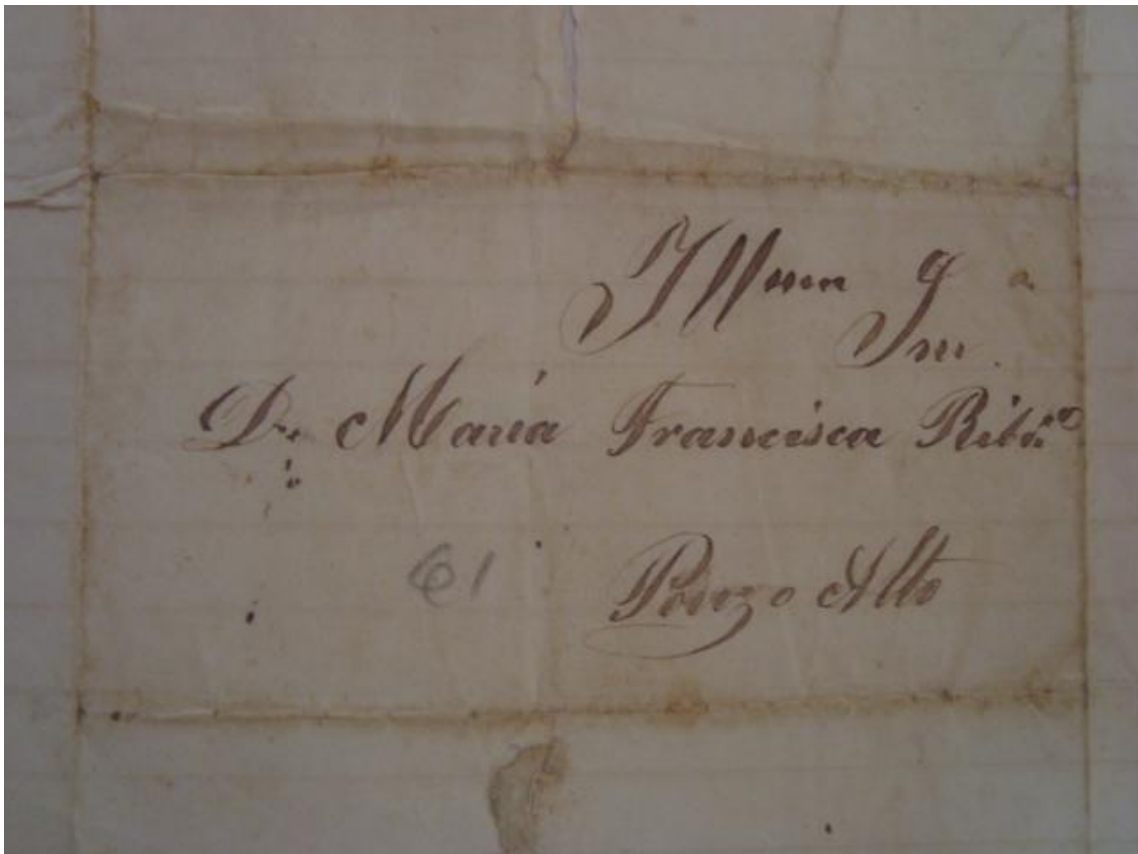 Illma
D. Maria Francisca Ribr.º
61
Pouzo Alto